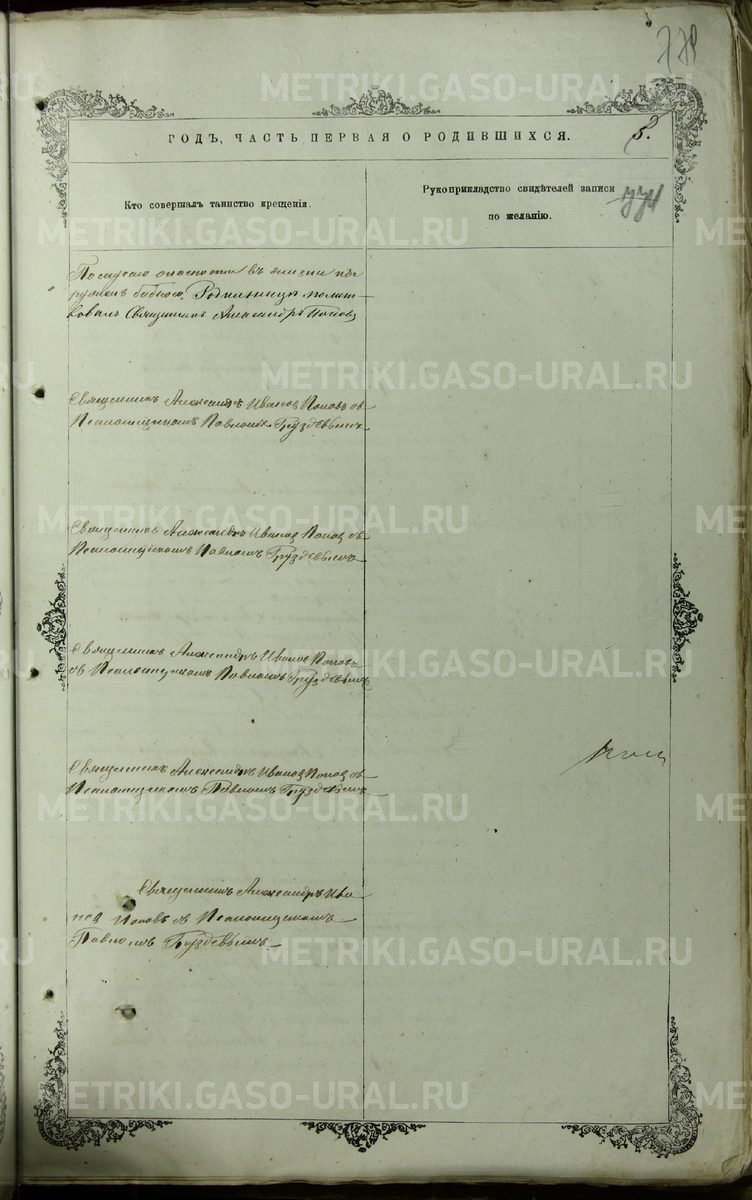 778
ГОДЪ, ЧАСТЬ ПЕРВАЯ О РОДИВШИХСЯ.
5.
Кто совершалъ таинство крещенія.
Рукоприкладство свидѣтелей записи
по желанію.
774
По случаю опасности въ жизни
бабкою. Роdильницы молит
вовалъ Священникъ Александръ Поповъ
Священникъ Александръ Иванов Поповъ съ
Псаломщикомъ Павломъ Груздевымъ
Священникъ Александръ Иванов Попов съ
Псаломщикомъ Павломъ Груздевымъ
Священникъ Александръ Иванов Поповъ
съ Псаломщикомъ Павломъ Груздевымъ
Священникъ Александръ Иванов Попов съ
Псаломщикомъ Павломъ Груздевымъ
Священникъ Александръ Ива
нов Поповъ съ Псаломщикомъ
Павломъ Груздевымъ
METRIKI.GASO-URAL.RU